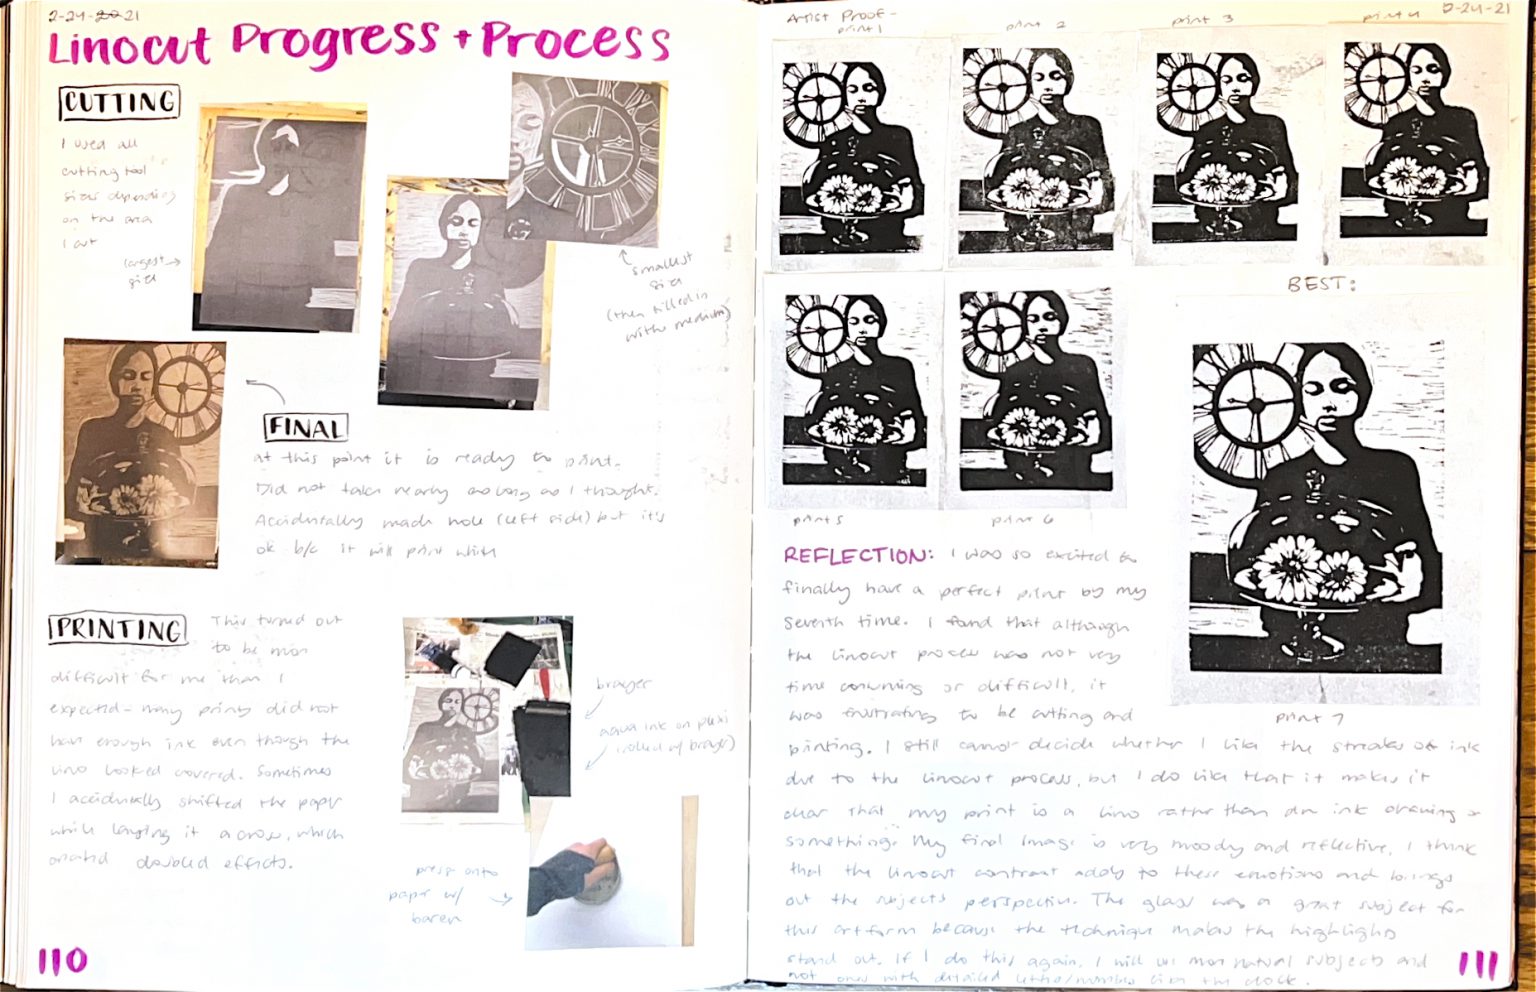 2-24-21
Linocut Progress + Process
CUTTING
I used all
cutting tool
sizes depending
on the area
I cut
largest
size
smallest
size
(then filled in
with medium)
FINAL
at this point it is ready to print.
Did not take nearly as long as I thought.
Accidentally made hole (left side) but it's
ok b/c it will print white
PRINTING
This turned out
to be more
difficult for me than I
expected - many prints did not
have enough ink even though the
lino looked covered. Sometimes
I accidentally shifted the paper
while laying it across, which
created doubled effects.
brayer
aqua ink on plexi
(rolled w/ brayer)
press onto
paper w/
baren
110
2-24-21
Artist Proof -
print 1
print 2
print 3
print 4
print 5
print 6
BEST:
print 7
REFLECTION: I was so excited to
finally have a perfect print by my
seventh time. I found that although
the linocut process was not very
time consuming or difficult, it
was frustrating to be cutting and
printing. I still cannot decide whether I like the streaks of ink
due to the linocut process, but I do like that it makes it
clear that my print is a lino rather than an ink drawing or
something. My final image is very moody and reflective, I think
that the linocut contrast adds to these emotions and brings
out the subjects perspective. The glass was a great subject for
this art form because the technique makes the highlights
stand out. If I do this again, I will use more natural subjects and
not ones with detailed like the clock.
111